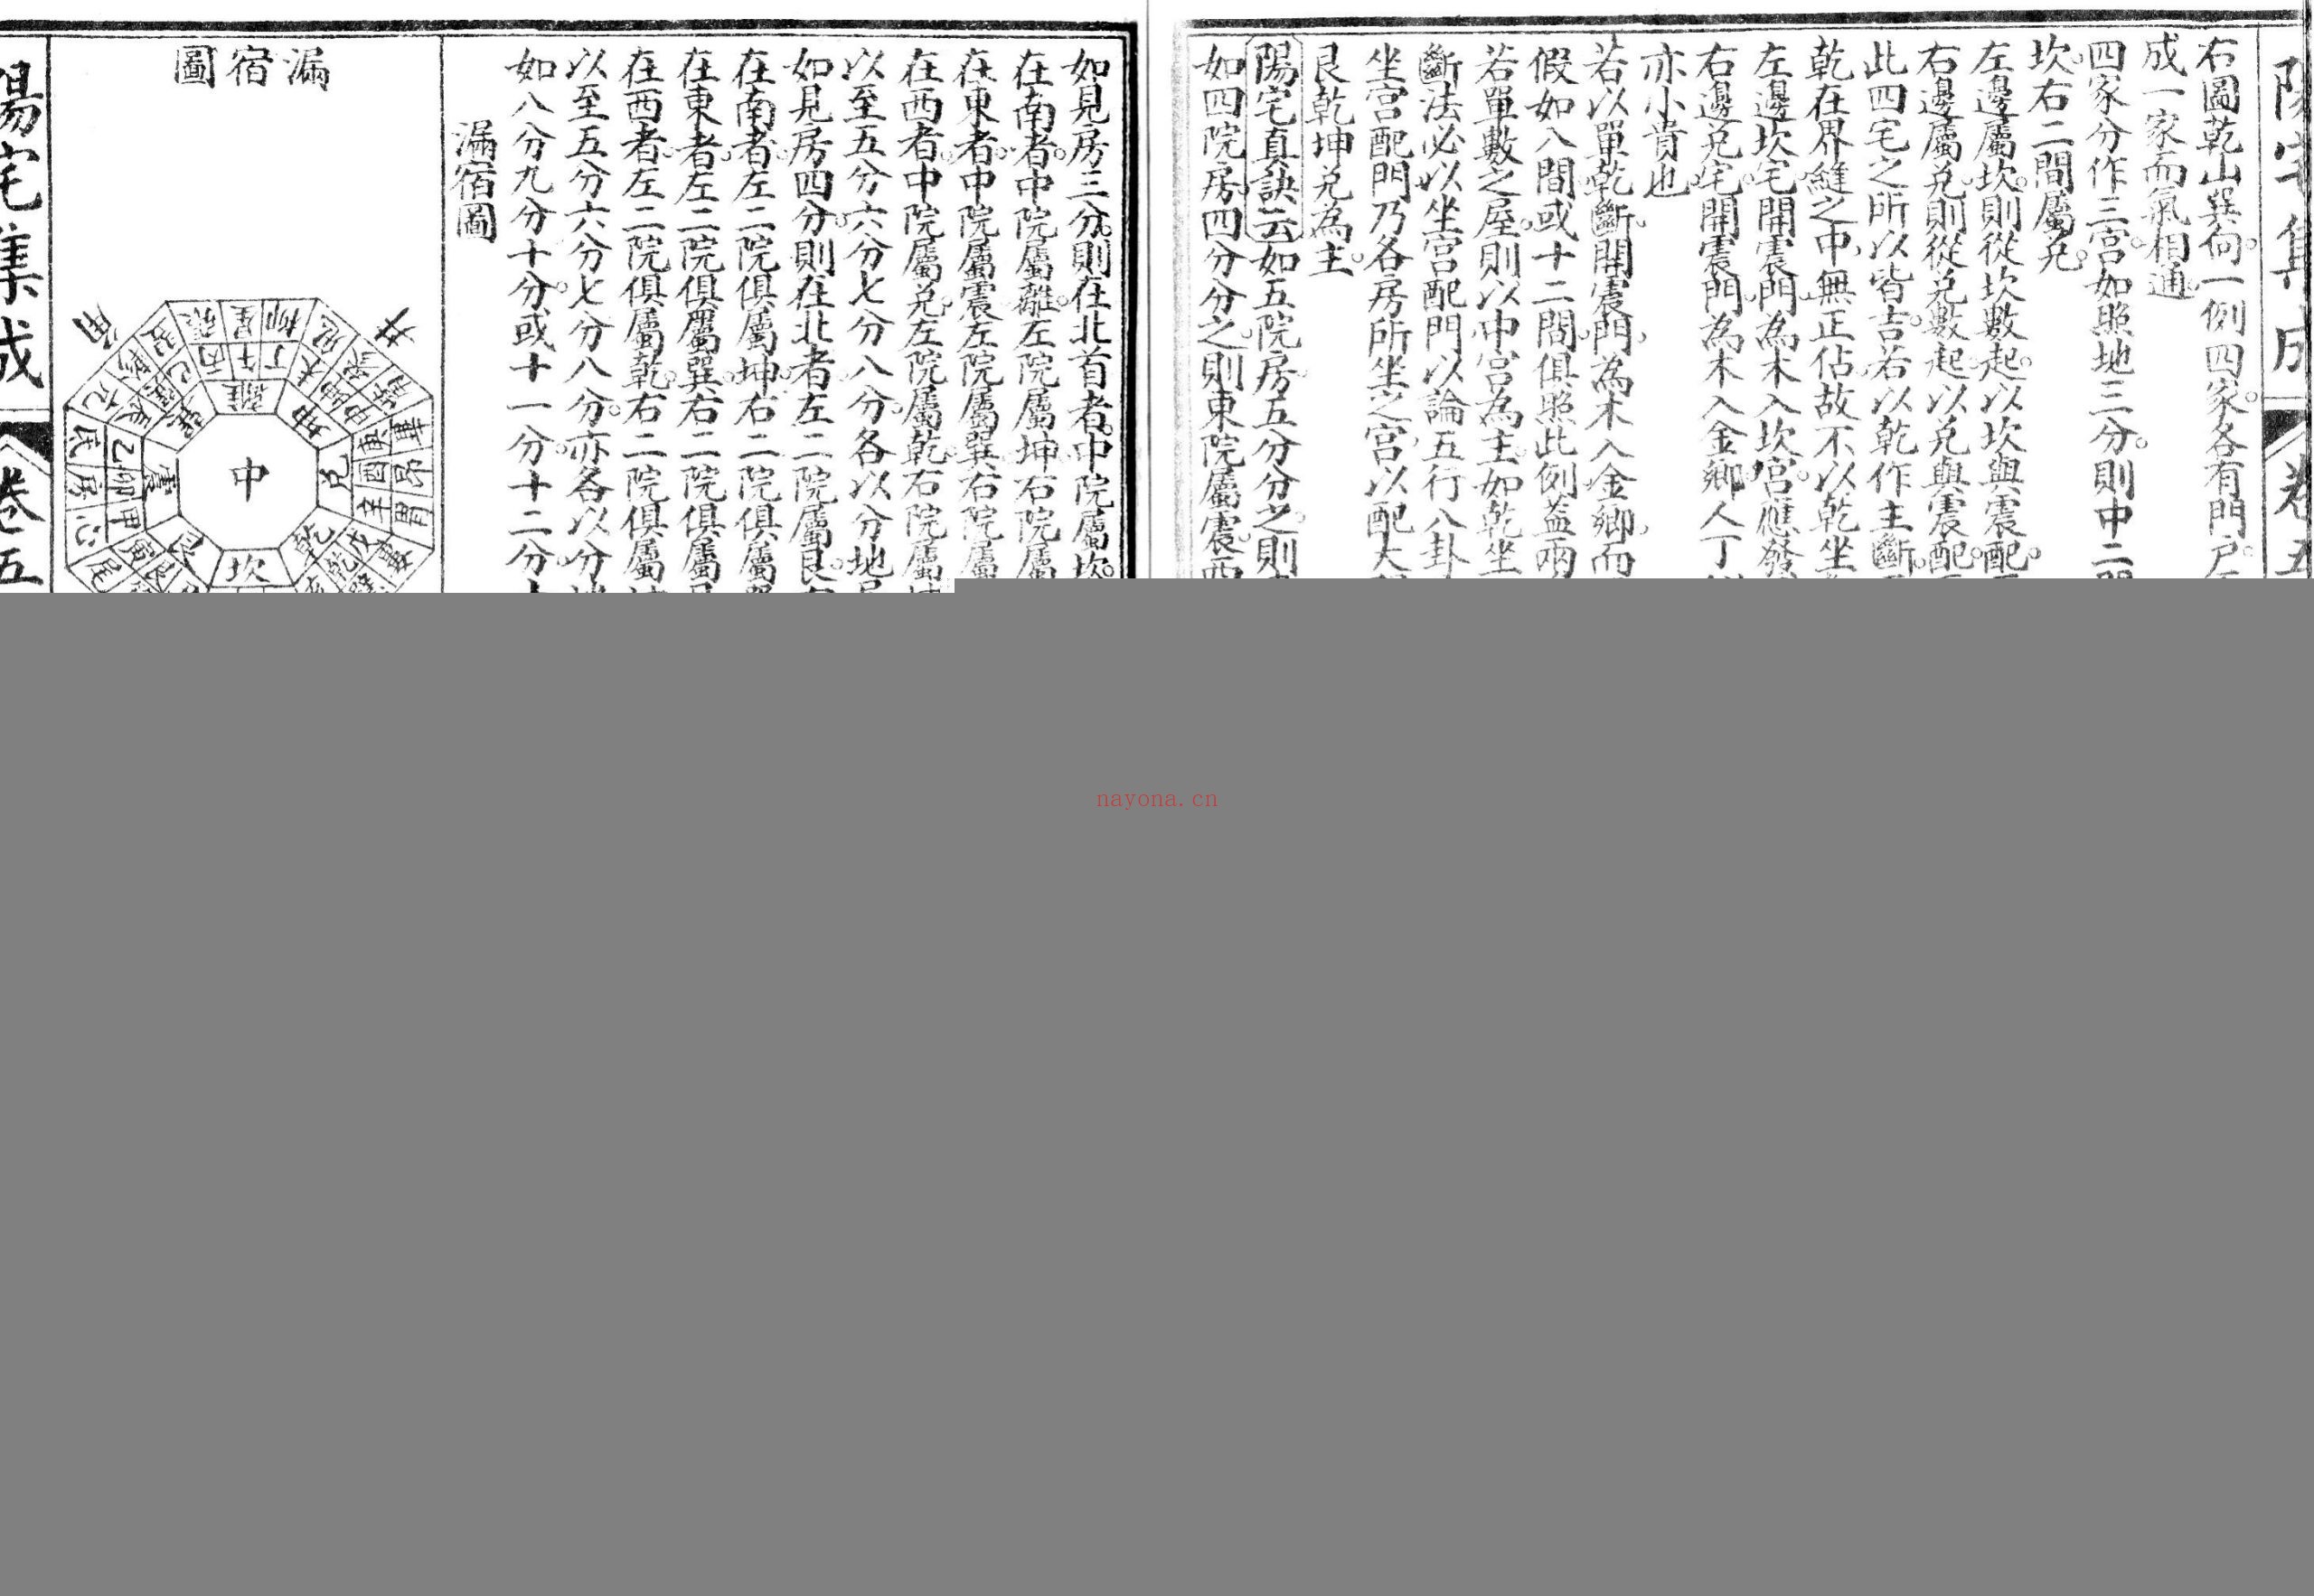 陽宅集成
卷五
右圖乾山巽向一例四家各有門戶
成一家而氣相通
四家分作三宮如照地三分則中二間
坎右二間屬兌
左邊屬坎則從坎數起以坎與震配
右邊屬兌則從兌數起以兌與震配
此四宅之所以皆吉若以乾作主斷
乾在界縫之中無正佔故不以乾坐
左邊坎宅開震門為木入坎宮應發
右邊兌宅開震門為木入金鄉人丁
亦小貴也
若以單乾斷開震門為木入金鄉而
假如八間或十二間俱照此例盖兩
若單數之屋則以中宮為主如乾坐
斷法必以坐宮配門以論五行八卦
坐宮配門乃各房所坐之宮以配大
艮乾坤兌為主
陽宅真訣云如五院房五分分之則
如四院房四分分之則東院屬震西
如見房三分則在北首者中院屬坎
在南者中院屬離左院屬坤右院屬
在東者中院屬震左院屬巽右院屬
在西者中院屬兌左院屬乾右院屬坤
以至五分六分七分八分各以分地
如見房四分則在北者左二院屬艮
在南者左二院俱屬坤右二院俱屬巽
在東者左二院俱屬巽右二院俱屬艮
在西者左二院俱屬乾右二院俱屬坤
以至五分六分七分八分亦各以分地
如八分九分十分或十一分十二分
漏宿圖
漏宿圖
井
角
柳星張
丁午丙
離
坤
兌
乾
坎
震
巽
中
庚酉辛
畢昴胃
乙卯甲
氐房心
亢
陽宅集成
卷五
nayona.cn